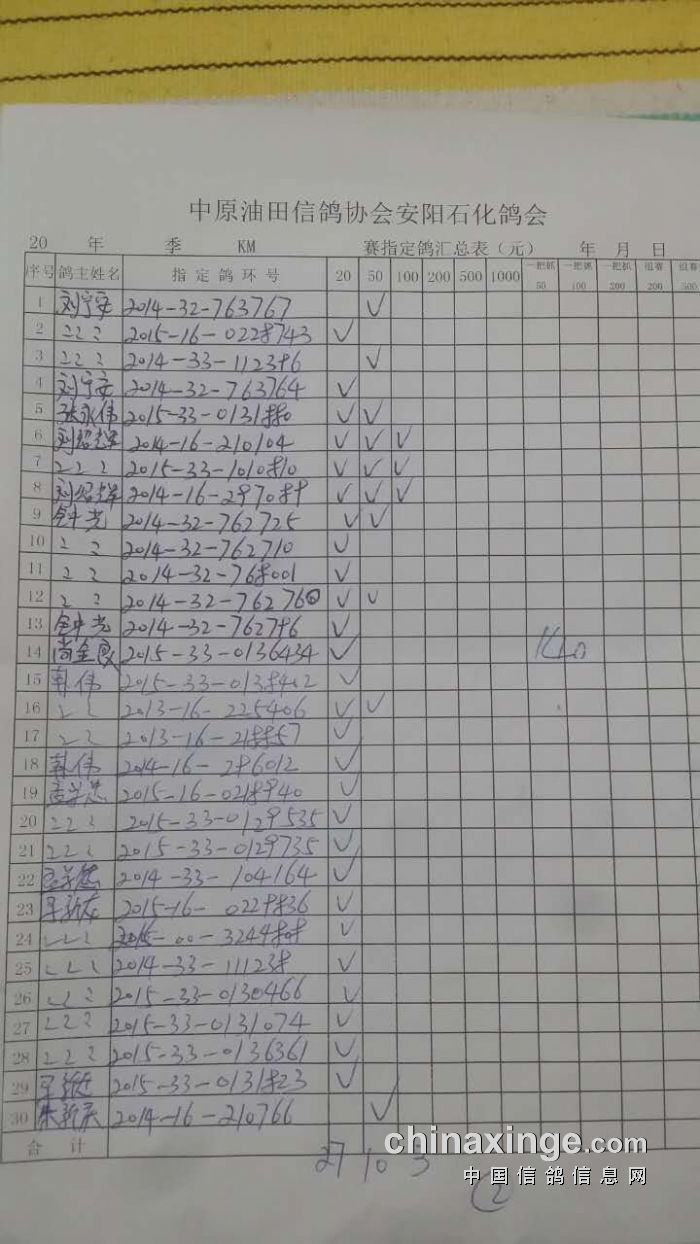 中原油田信鸽协会安阳石化鸽会
20 年 季 KM 赛指定鸽汇总表（元） 年 月 日
序号 鸽主姓名 指定鸽环号 20 50 100 200 500 1000 一把抓 50 一把抓 100 一把抓 200 组赛 200 组赛 500
1 刘宁安 2014-32-763767 ✓
2 2015-16-0228743 ✓
3 2014-33-112386 ✓
4 刘宁安 2014-32-763764 ✓
5 张永伟 2015-33-0131880 ✓ ✓
6 刘绍辉 2014-16-210104 ✓ ✓ ✓
7 2015-33-1010810 ✓ ✓ ✓
8 刘绍辉 2014-16-297089 ✓ ✓ ✓
9 2014-32-762725 ✓ ✓
10 2014-32-762710 ✓
11 2014-32-768001 ✓
12 2014-32-76276 ✓ ✓
13 2014-32-762786 ✓
14 2015-33-0136434 ✓
15 韩伟 2015-33-0138402 ✓
16 2013-16-225406 ✓ ✓
17 2013-16-218857 ✓
18 韩伟 2014-16-286012 ✓
19 2015-16-0218940 ✓
20 2015-33-0129535 ✓
21 2015-33-0129735 ✓
22 2014-33-104164 ✓
23 2015-16-0229836 ✓
24 2015-00-3244808 ✓
25 2014-33-111238 ✓
26 2015-33-0130466 ✓
27 2015-33-0131074 ✓
28 2015-33-0136361 ✓
29 2015-33-0131823 ✓
30 朱新庆 2014-16-210766 ✓
合计 27 10 3
②
chinaxinge.com
中国信鸽信息网